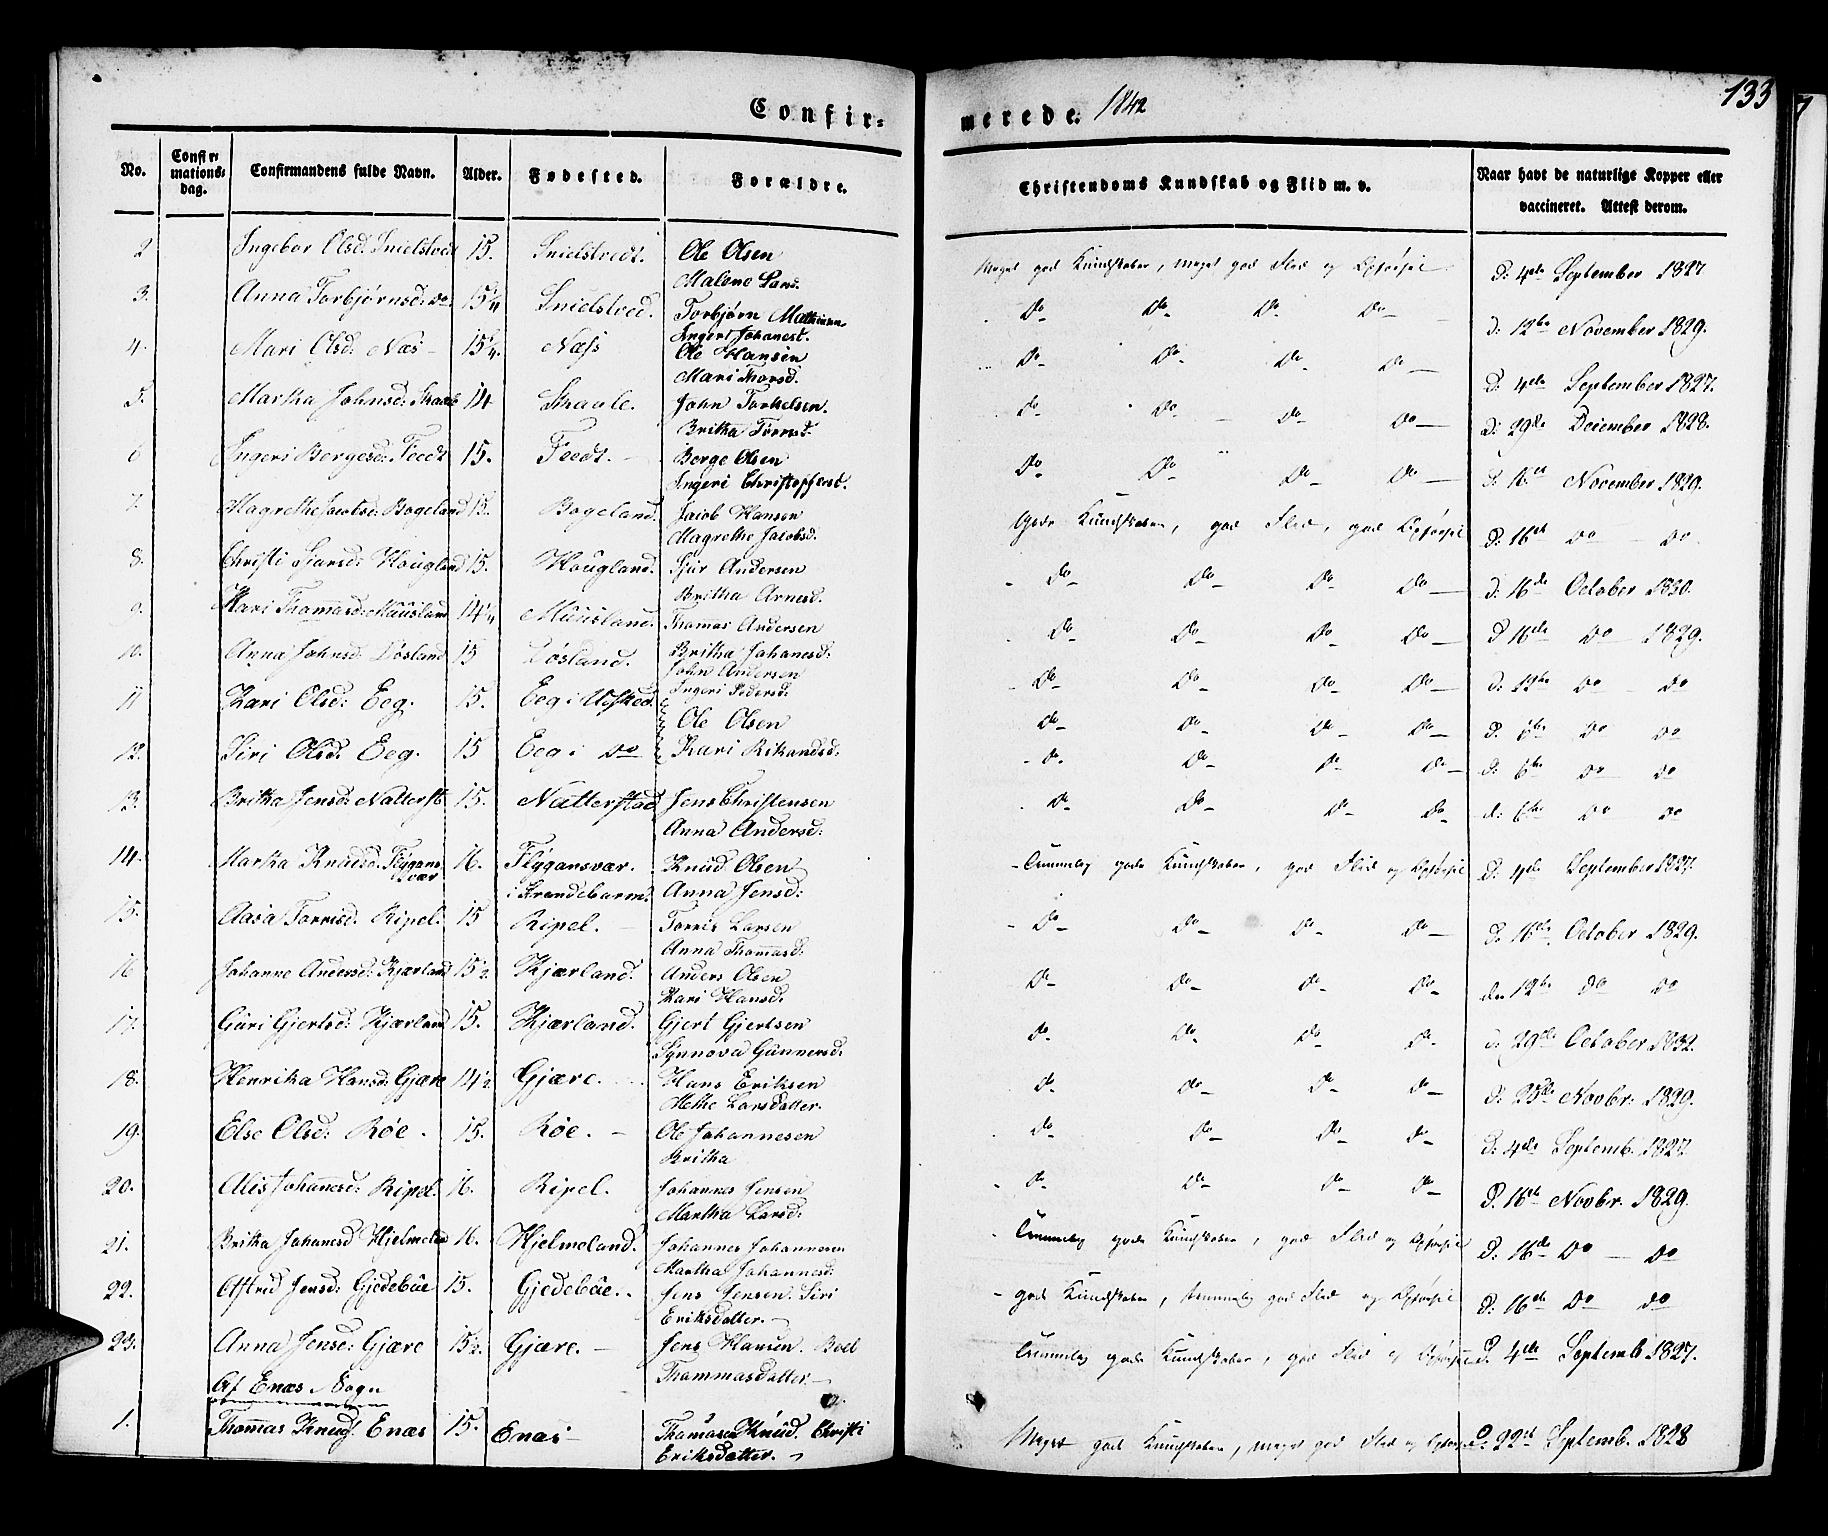 Confir- merede. 1842 133
No. Confirmationsdag. Confirmandens fulde Navn. Alder. Fødested. Forældre. Christendoms Kundskab og Flid m. v. Naar havt de naturlige Kopper eller vaccineret. Attest derom.
2 Ingebor Olsd: 15. Ole Olsen Meget god Kundskaber, meget god Flid og Opførsel d: 4de September 1827
Malene Larsd.
3. Anna Torbjørnsd: do 15 1/4 Torbjørn do do do do d: 12te November 1829.
Ingeri Johanesd.
4. Mari Olsd: Næs 15 1/4. Næss Ole Hansen do do do do d: 4de September 1827.
Mari Thorsd.
5. Martha Johnsd: Skaale 14 Skaale. John Torkelsen. do do do do d: 29de December 1828.
Britha Tornsd.
6 Ingeri Borgesd: Tvedt 15. Tvedt. Borge Olsen do do do do d: 16de November 1829.
Ingeri Christophersd.
7. Magrethe Jacobsd: Bogeland 15. Bogeland. Jacob Hansen Gode Kundskaber, god Flid, god Opførsel d: 16de do do
Magrethe Jacobsd.
8. Christi Sjursd: Hougland 15. Hougland. Sjur Andersen do do do do d: 16de October 1830.
Britha Arnesd.
9. Kari Thomasd: Muusland 14 1/4 Muusland. Thomas Andersen do do do do d 16de do 1829.
Britha Johanesd:
10. Anna Johnsd: Døsland 15 Døsland. John Andersen do do do do d: 12te do do
Ingeri Pedersd:
11 Kari Olsd: Eeg. 15. Eeg i Ølfsted Ole Olsen do do do do d: 6te do do
12. Siri Olsd: Eeg. 15 Eeg i do Kari Rikandsd: do do do do d: 6te do do
13. Britha Jensd: Natterst 15. Natterstad Jens Christensen do do do do d: 6te do do
Anna Andersd:
14. Martha Knudsd: Flygansvær 16. Flygansvær. Knud Olsen Temmelig gode Kundskaber, god Flid og Opførsel d: 4de September 1827.
i Strandebarm. Anna Jensd:
15. Aasa Tornsd: Ripel. 15 Ripel. Torris Larsen do do do do d: 16de October 1829.
Anna Thomasd:
16 Johanne Andersd: Kjærland 15 1/2 Kjærland. Anders Olsen do do do do den 12te do do
Kari Hansd:
17. Guri Gjertsd: Kjærland 15. Kjærland. Gjert Gjertsen do do do do d: 29de October 1832.
Synnova Gunnersd:
18. Henrika Hansd: Gjære 14 1/2 Gjære. Hans Eriksen do do do do d: 25de Novbr: 1829.
Methe Larsdatter.
19. Else Olsd: Røe. 15. Røe. Ole Johannesen do do do do d: 4de Septemb. 1827
Britha
20. Alis Johanesd: Ripel. 16. Ripel. Johannes Jensen do do do do d. 16de Novbr. 1829.
Martha Larsd:
21. Britha Johanesd Hjelmelan 16. Hjelmeland. Johannes Johannesen Temmelig gode Kundskaber, god Flid og Opførsel d: 16de do do
Martha Johannesd:
22. Astrid Jensd: Gjedebøe 15. Gjedebøe. Jens Jensen. Siri god Kundskaber, temmelig god Flid og Opførsel d: 16de do do
Eriksdatter.
23. Anna Jensd: Gjære 15 1/2. Gjære. Jens Hansen. Boel Temmelig gode Kundskaber, god Flid og Opførsel d. 4de Septemb 1827.
Thommasdatter.
Af Enæs Sogn
1. Thommas Knud: Enæs 15. Enæs Knud. Christi Meget god Kundskaber, meget god Flid og Opførsel d: 22de Septemb. 1828
Eriksdatter.